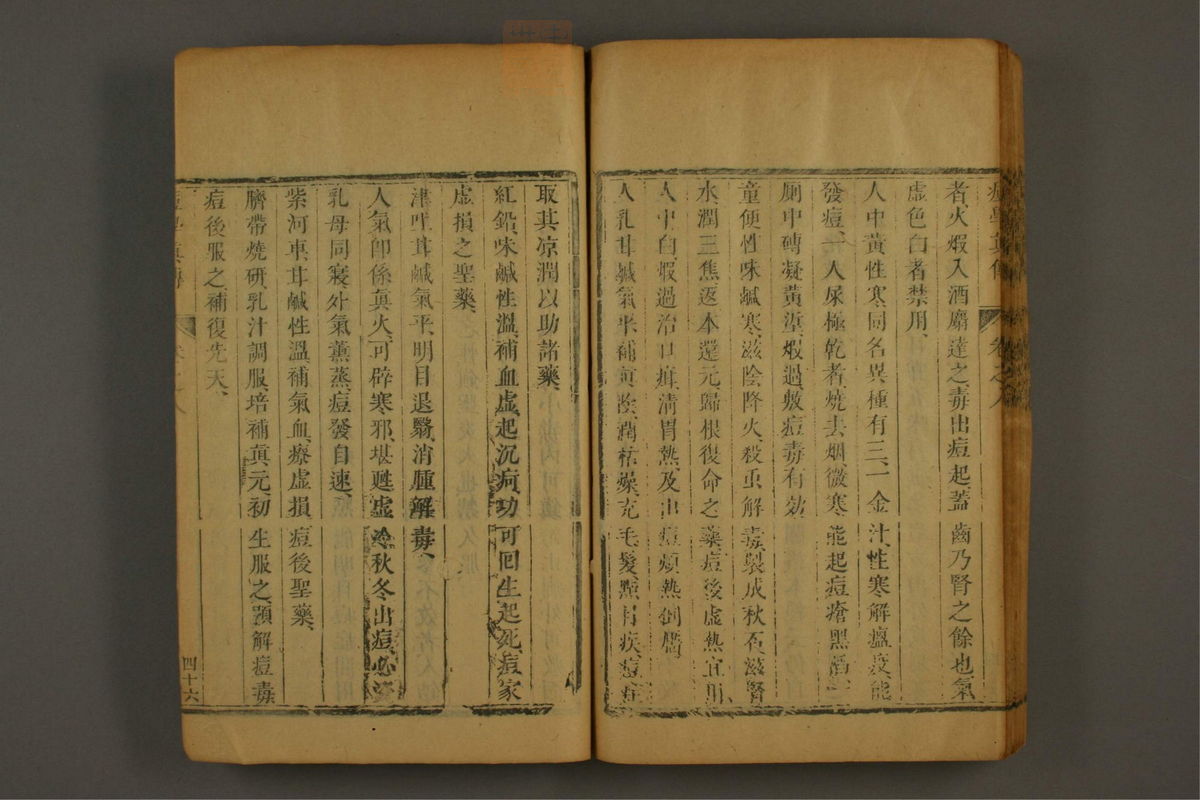 痘學眞傳 卷之八
者火煆入酒麝達之毒出痘起蓋齒乃腎之餘也氣
虛色白者禁用
人中黃性寒同名異種有三一金汁性寒解瘟疫能
發痘一人尿極乾者燒去烟微寒能起痘瘡黑陷一
厠中磚凝黃垽煆過敷痘毒有効
童便性味鹹寒滋陰降火殺虫解毒製成秋石滋腎
水潤三焦返本還元歸根復命之藥痘後虛熱宜用
人中白煆過治口疳淸胃熱及出痘煩熱
人乳甘鹹氣平補眞陰潤枯燥充毛髮點目疾痘症
取其凉潤以助諸藥
紅鉛味鹹性溫補血虛起沉疴功可回生起死痘家
虛損之聖藥
津唾甘鹹氣平明目退翳消腫解毒
人氣卽係眞火可辟寒邪堪甦虛冷秋冬出痘必須
乳母同寢外氣薰蒸痘發自速
紫河車甘鹹性溫補氣血療虛損痘後聖藥
臍帶燒研乳汁調服培補眞元初生服之預解痘毒
痘後服之補復先天
痘學眞傳 卷之八 四十六